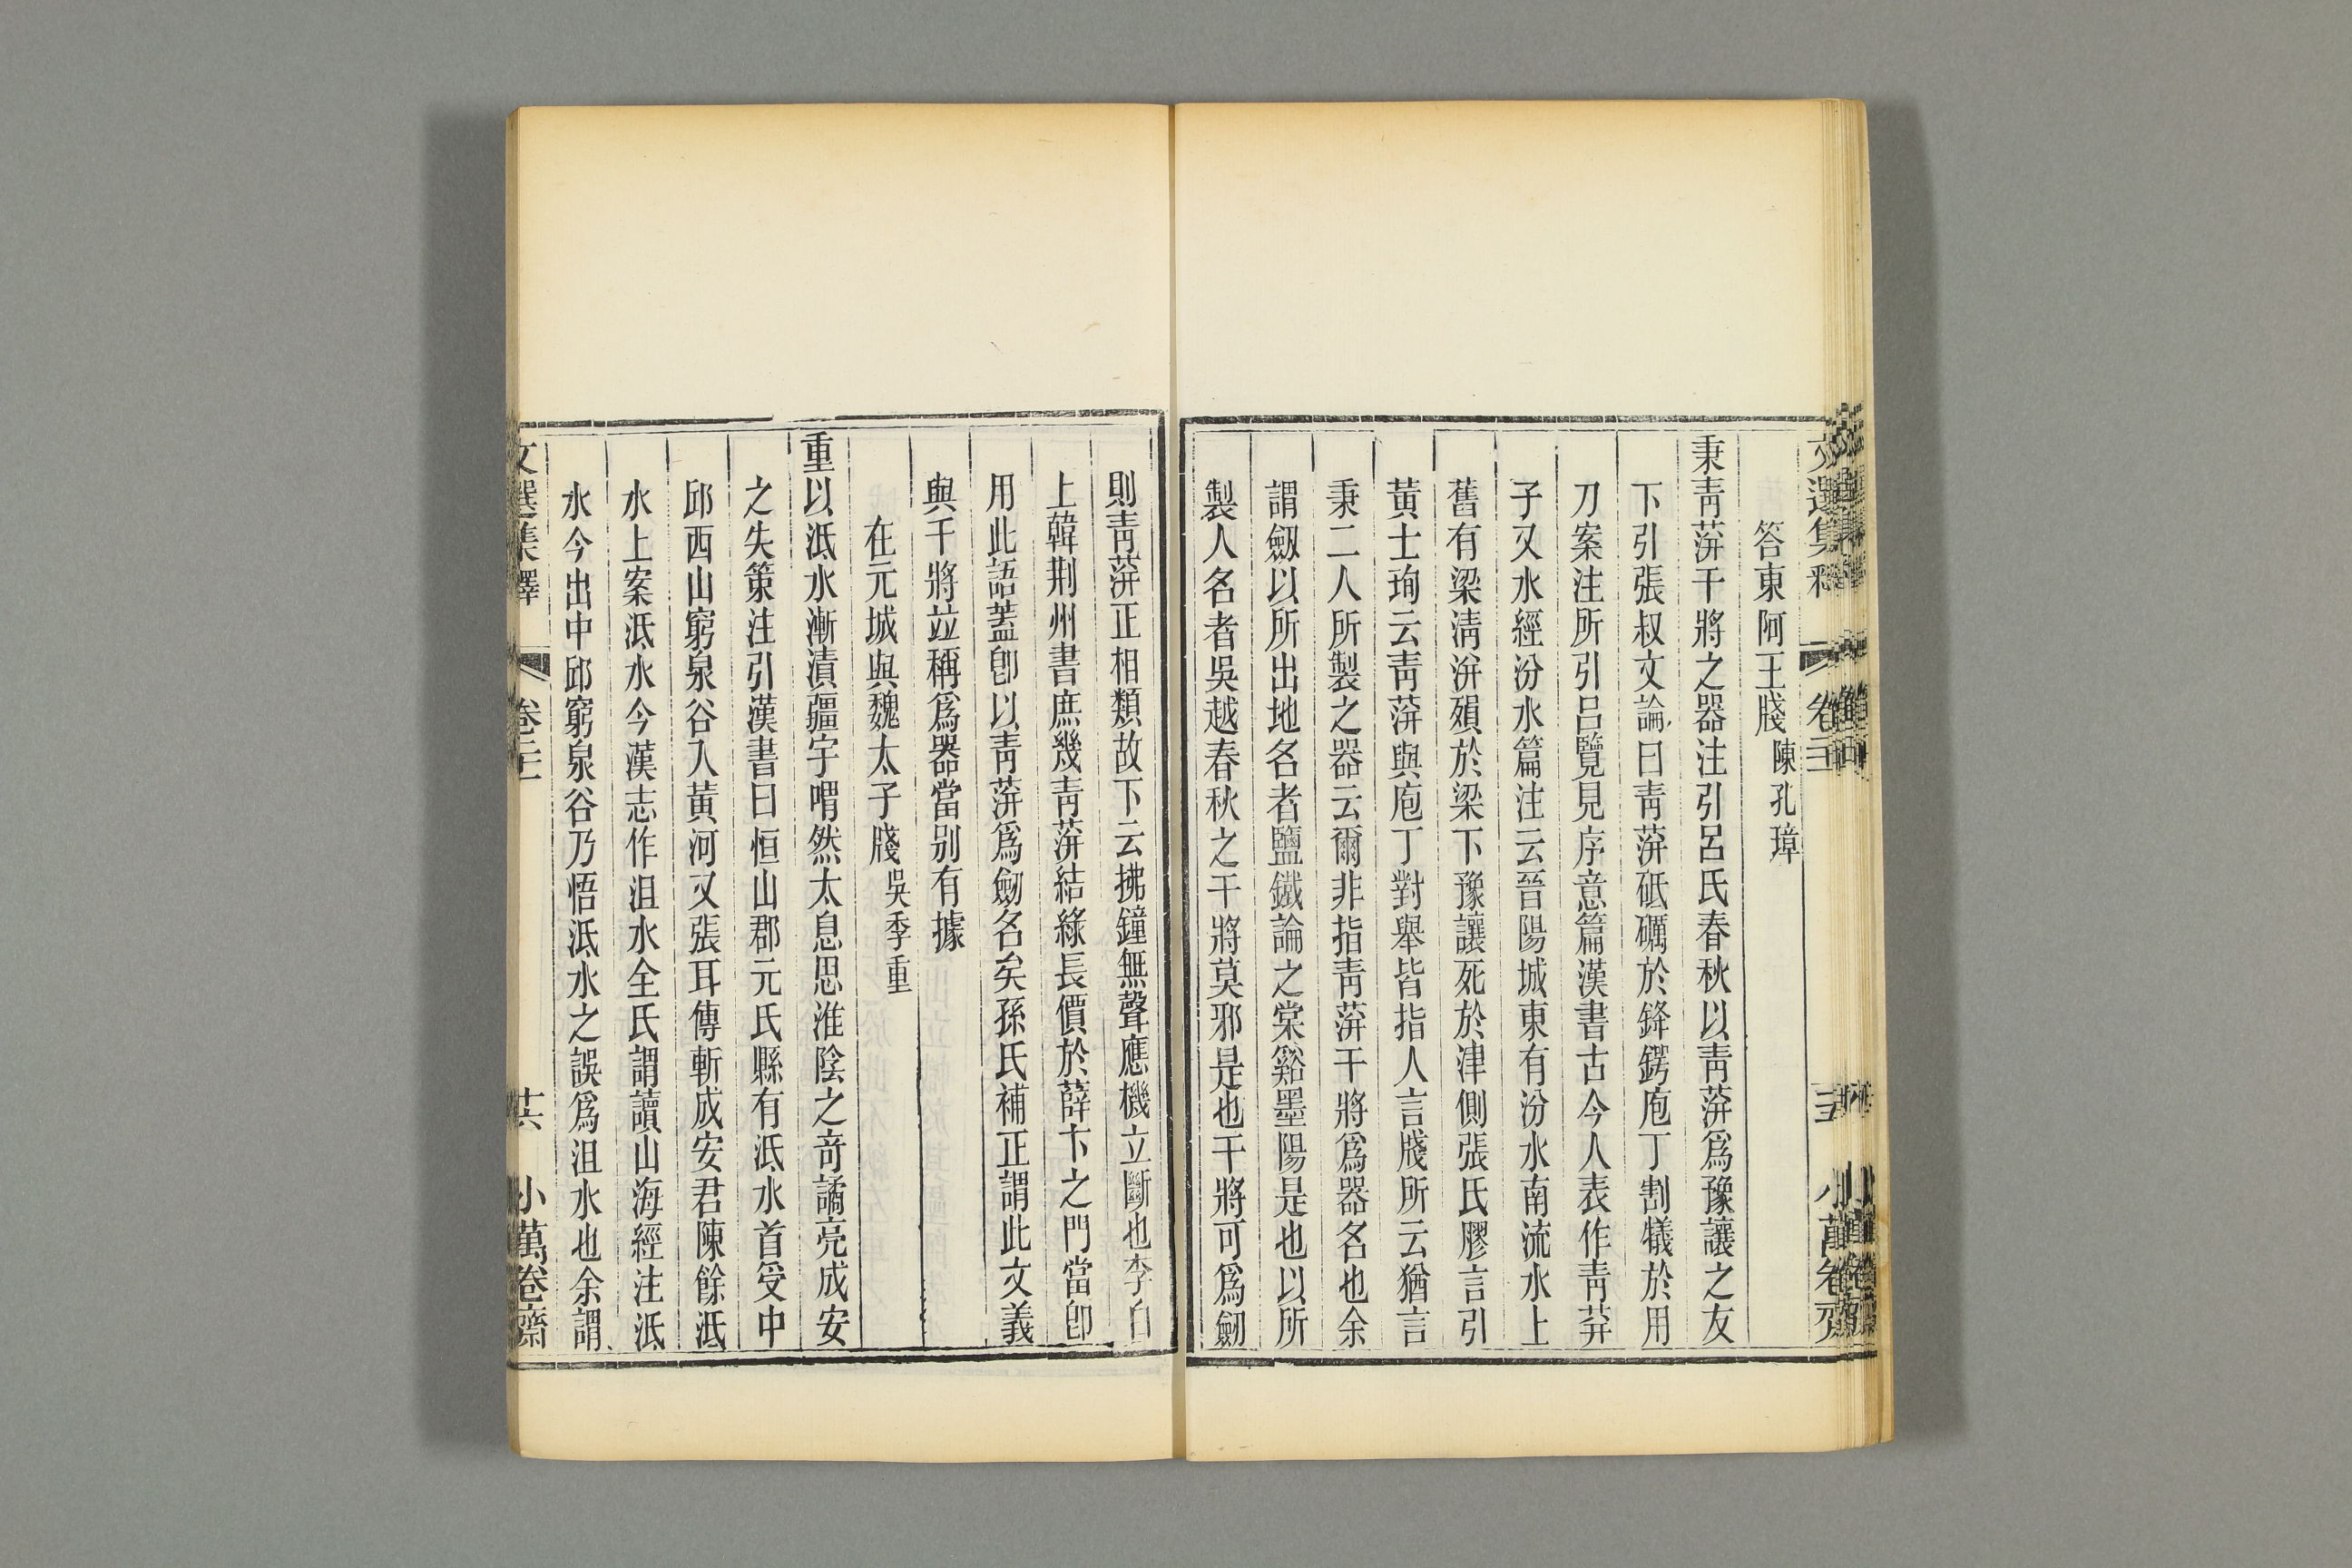 答東阿王牋陳孔璋
秉靑蓱干將之器注引呂氏春秋以靑蓱爲豫讓之友
下引張叔文論曰靑蓱砥礪於鋒鍔庖丁割犧於用
刀案注所引呂覽見序意篇漢書古今人表作靑荓
子又水經汾水篇注云晉陽城東有汾水南流水上
舊有梁淸洴殞於梁下豫讓死於津側張氏膠言引
黃士珣云靑蓱與庖丁對舉皆指人言牋所云猶言
秉二人所製之器云爾非指靑蓱干將爲器名也余
謂劔以所出地名者鹽鐵論之棠谿墨陽是也以所
製人名者吳越春秋之干將莫邪是也干將可爲劒
則靑蓱正相類故下云拂鐘無聲應機立斷也李白
上韓荆州書庶幾靑蓱結綠長價於薛卞之門當卽
用此語蓋卽以靑蓱爲劒名矣孫氏補正謂此文義
與干將竝稱爲器當别有據
在元城與魏太子牋吳季重
重以泜水漸漬疆宇喟然太息思淮陰之奇譎亮成安
之失策注引漢書曰恒山郡元氏縣有泜水首受中
邱西山窮泉谷入黃河又張耳傳斬成安君陳餘泜
水上案泜水今漢志作沮水全氏謂讀山海經注泜
水今出中邱窮泉谷乃悟泜水之誤爲沮水也余謂
文選集釋
卷二十一
廿六
小萬卷齋